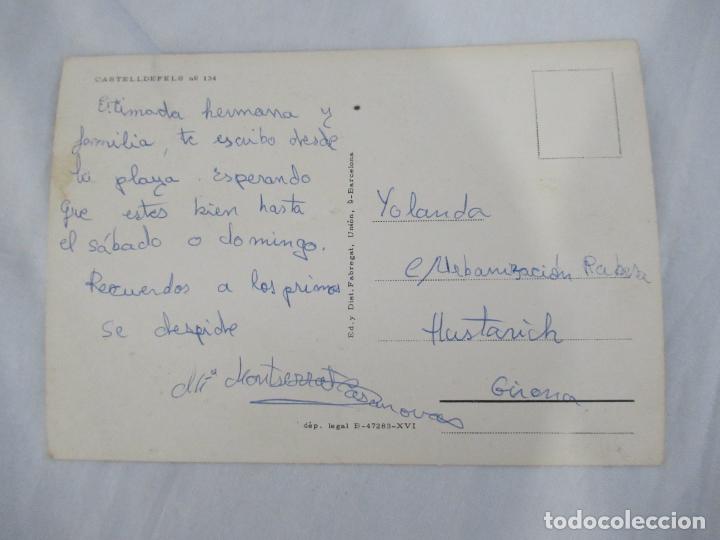 CASTELLDEFELS nº 134
Estimada hermana y
familia, te escribo desde
la playa. Esperando
que estes bien hasta
el sábado o domingo.
Recuerdos a los primos
se despide
Mª Montserrat Casanovas
Ed. y Dist. Fabregat, Unión, 9-Barcelona
Yolanda
C/Urbanización
Girona
dép. legal B-47283-XVI
todocoleccion.net